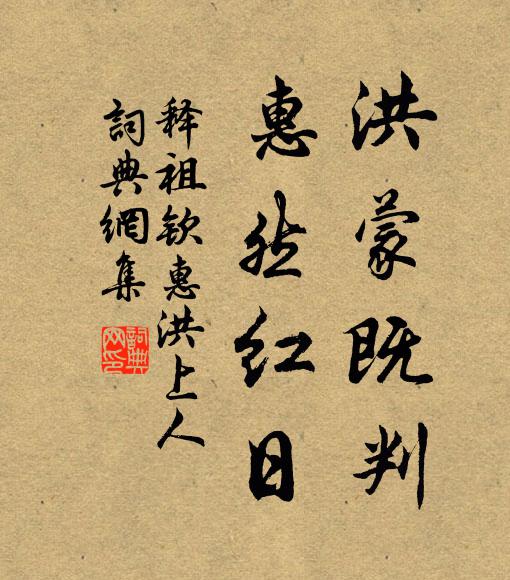 洪蒙既判
惠然红日
释祖钦惠洪上人
詞典網集
詞典網印